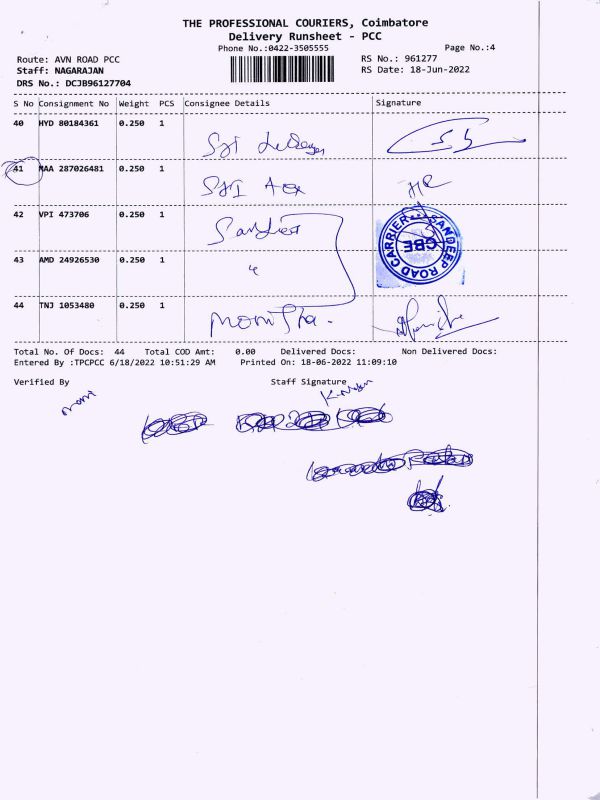 THE PROFESSIONAL COURIERS, Coimbatore
Delivery Runsheet - PCC
Phone No.:0422-3505555
Page No.:4
Route: AVN ROAD PCC
RS No.: 961277
Staff: NAGARAJAN
RS Date: 18-Jun-2022
DRS No.: DCJB96127704
S No Consignment No Weight PCS Consignee Details Signature
40 HYD 80184361 0.250 1
41 MAA 287026481 0.250 1
42 VPI 473706 0.250 1
SANDEEP ROAD CARRIER
CBE
43 AMD 24926530 0.250 1
44 TNJ 1053480 0.250 1
Total No. Of Docs: 44 Total COD Amt: 0.00 Delivered Docs: Non Delivered Docs:
Entered By :TPCPCC 6/18/2022 10:51:29 AM Printed On: 18-06-2022 11:09:10
Verified By Staff Signature